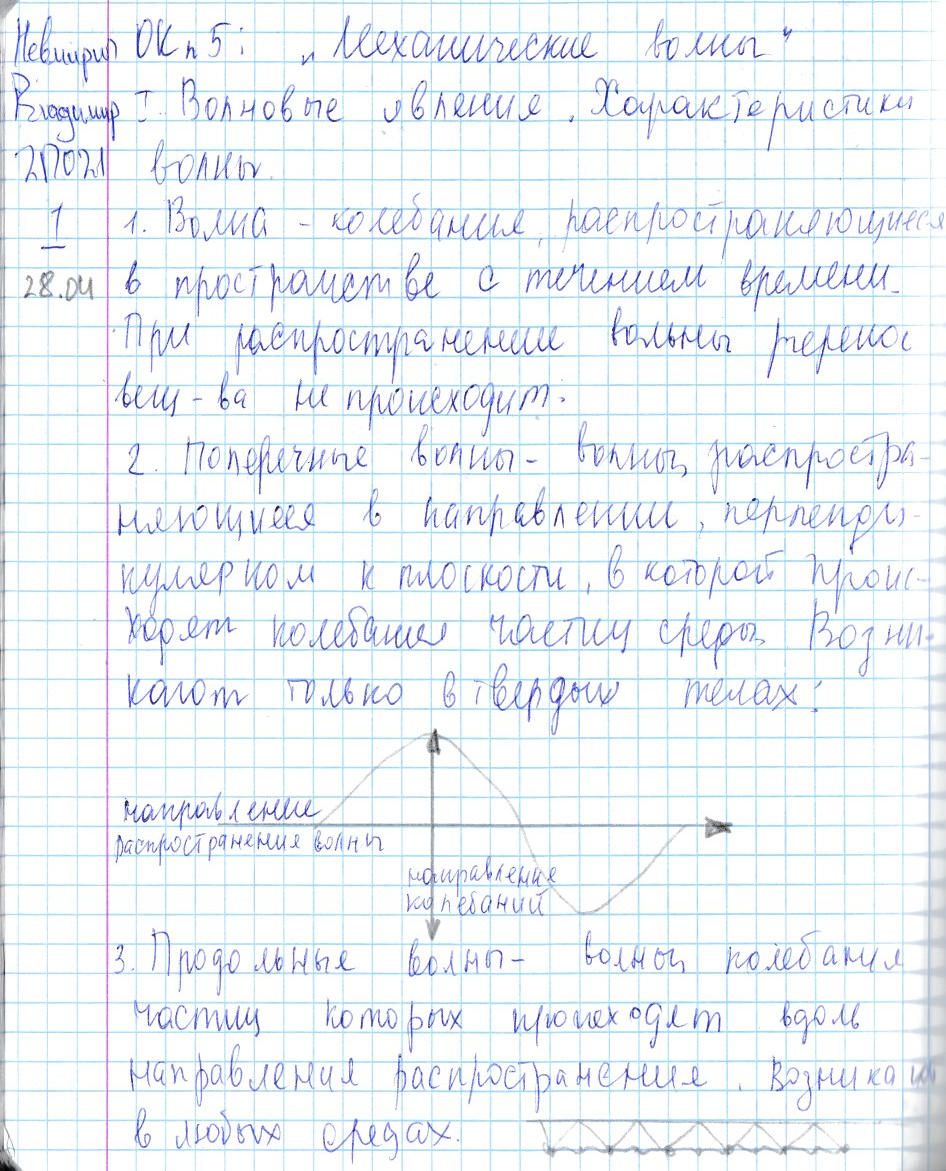 ОК п 5: „Механические волны"
Владимир I. Волновые явления. Характеристики
2П021 волны.
1 1. Волна - колебания, распространяющиеся
28.04 в пространстве с течением времени.
При распространении вольны перенос
вещ-ва не происходит.
2. Поперечные волны - волны, распростра-
няющиеся в направлении, перпенди-
кулярном к плоскости, в которой проис-
ходят колебания частиц среды. Возни-
кают только в твердых телах:
направление
распространения волны
направление
колебаний
3. Продольные волны - волны, колебания
частиц которых происходят вдоль
направления распространения. Возникают
в любых средах.